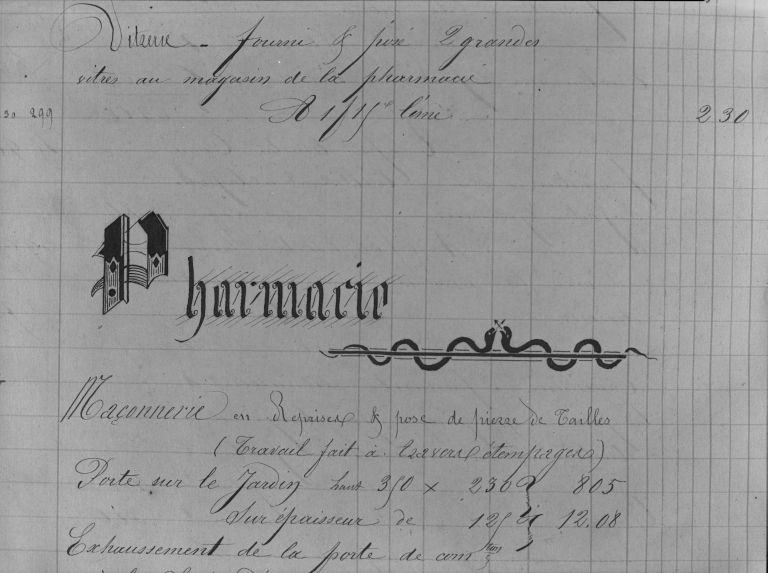 Vitrerie - fourni & posé 2 grandes
vitres au magasin de la pharmacie
30 299 A 115 l'une 230
Pharmacie
Maçonnerie en Reprises & pose de pierre de Tailles
(Travail fait à travers étempages)
Porte sur le Jardin haut 350 x 230 805
Surépaisseur de 12.08
Exhaussement de la porte de com